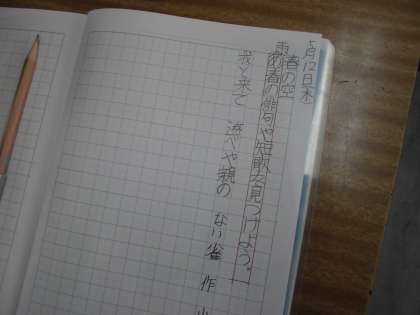 5月12日(木)
春の空
春の俳句や短歌を見つけよう。
我と来て 遊べや親の ない雀 作